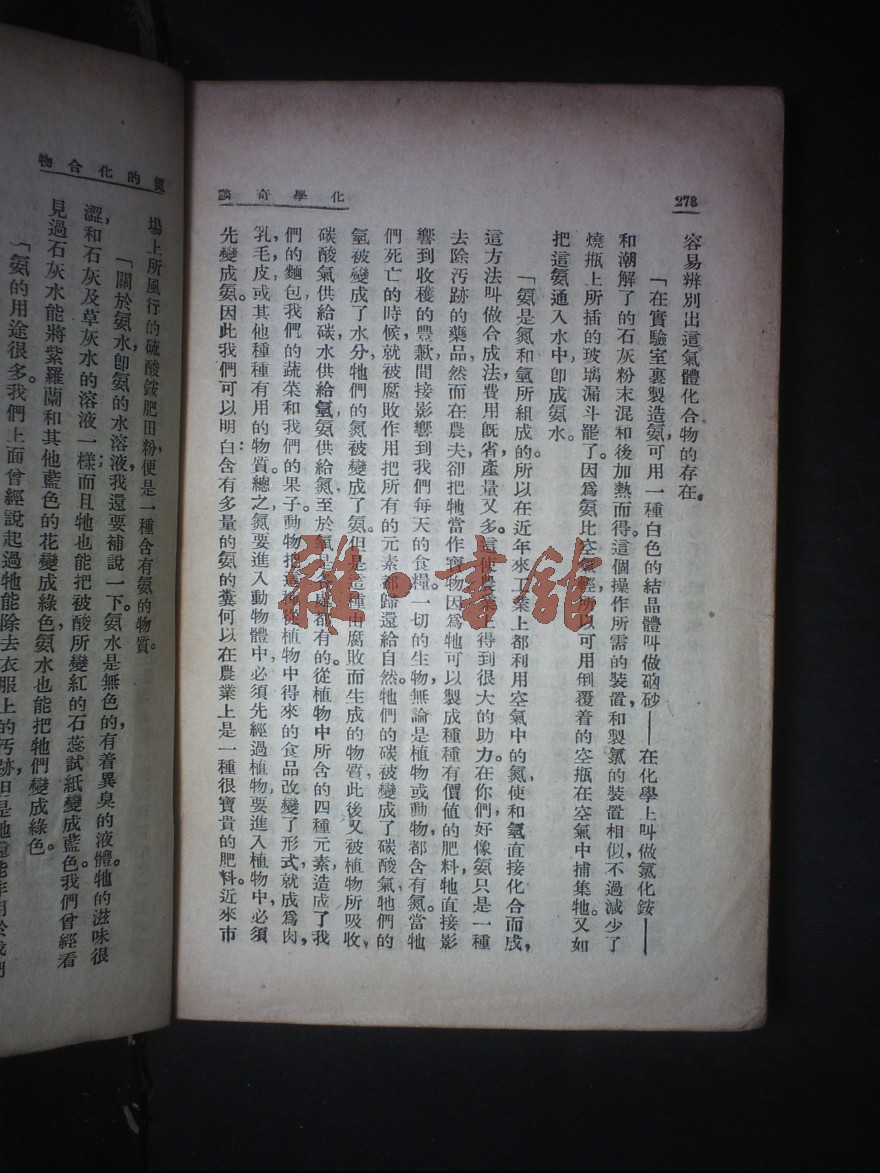 278
化學奇談
容易辨別出這氣體化合物的存在。
「在實驗室裏製造氨,可用一種白色的結晶體叫做硇砂——在化學上叫做氯化銨——
和潮解了的石灰粉末混和後加熱而得。這個操作所需的裝置,和製氯的裝置相似,不過減少了
燒瓶上所插的玻璃漏斗罷了。因爲氨比空氣輕,所以可用倒覆着的空瓶在空氣中捕集牠。又如
把這氨通入水中,卽成氨水。
「氨是氮和氫所組成的。所以在近年來工業上都利用空氣中的氮,使和氫直接化合而成,
這方法叫做合成法,費用旣省,產量又多。這使農業上得到很大的助力。在你們,好像氨只是一種
去除汚跡的藥品,然而在農夫,卻把牠當作寶物,因爲牠可以製成種種有價値的肥料,牠直接影
響到收穫的豐歉,間接影響到我們每天的食糧。一切的生物,無論是植物或動物,都含有氮。當牠
們死亡的時候,就被腐敗作用把所有的元素都歸還給自然。牠們的碳被變成了碳酸氣,牠們的
氫被變成了水分,牠們的氮被變成了氨。但是這種由腐敗而生成的物質,此後又被植物所吸收,
碳酸氣供給碳,水供給氫,氨供給氮,至於氧是各處都有的。從植物中所含的四種元素,造成了我
們的麵包,我們的蔬菜和我們的果子。動物把這種從植物中得來的食品改變了形式,就成爲肉,
乳,毛皮,或其他種種有用的物質。總之,氮要進入動物體中,必須先經過植物,要進入植物中,必須
先變成氨。因此我們可以明白:含有多量的氨的糞何以在農業上是一種很寶貴的肥料。近來市
的化合物
場上所風行的硫酸銨肥田粉,便是一種含有氨的物質。
「關於氨水,卽氨的水溶液,我還要補說一下。氨水是無色的,有着異臭的液體。牠的滋味很
澀,和石灰及草灰水的溶液一樣;而且牠也能把被酸所變紅的石蕊試紙變成藍色。我們曾經看
見過石灰水能將紫羅蘭和其他藍色的花變成綠色,氨水也能把牠們變成綠色。
「氨的用途很多。我們上面曾經說起過牠能除去衣服上的汚跡,但是牠還能作用於我們
雅·書舘